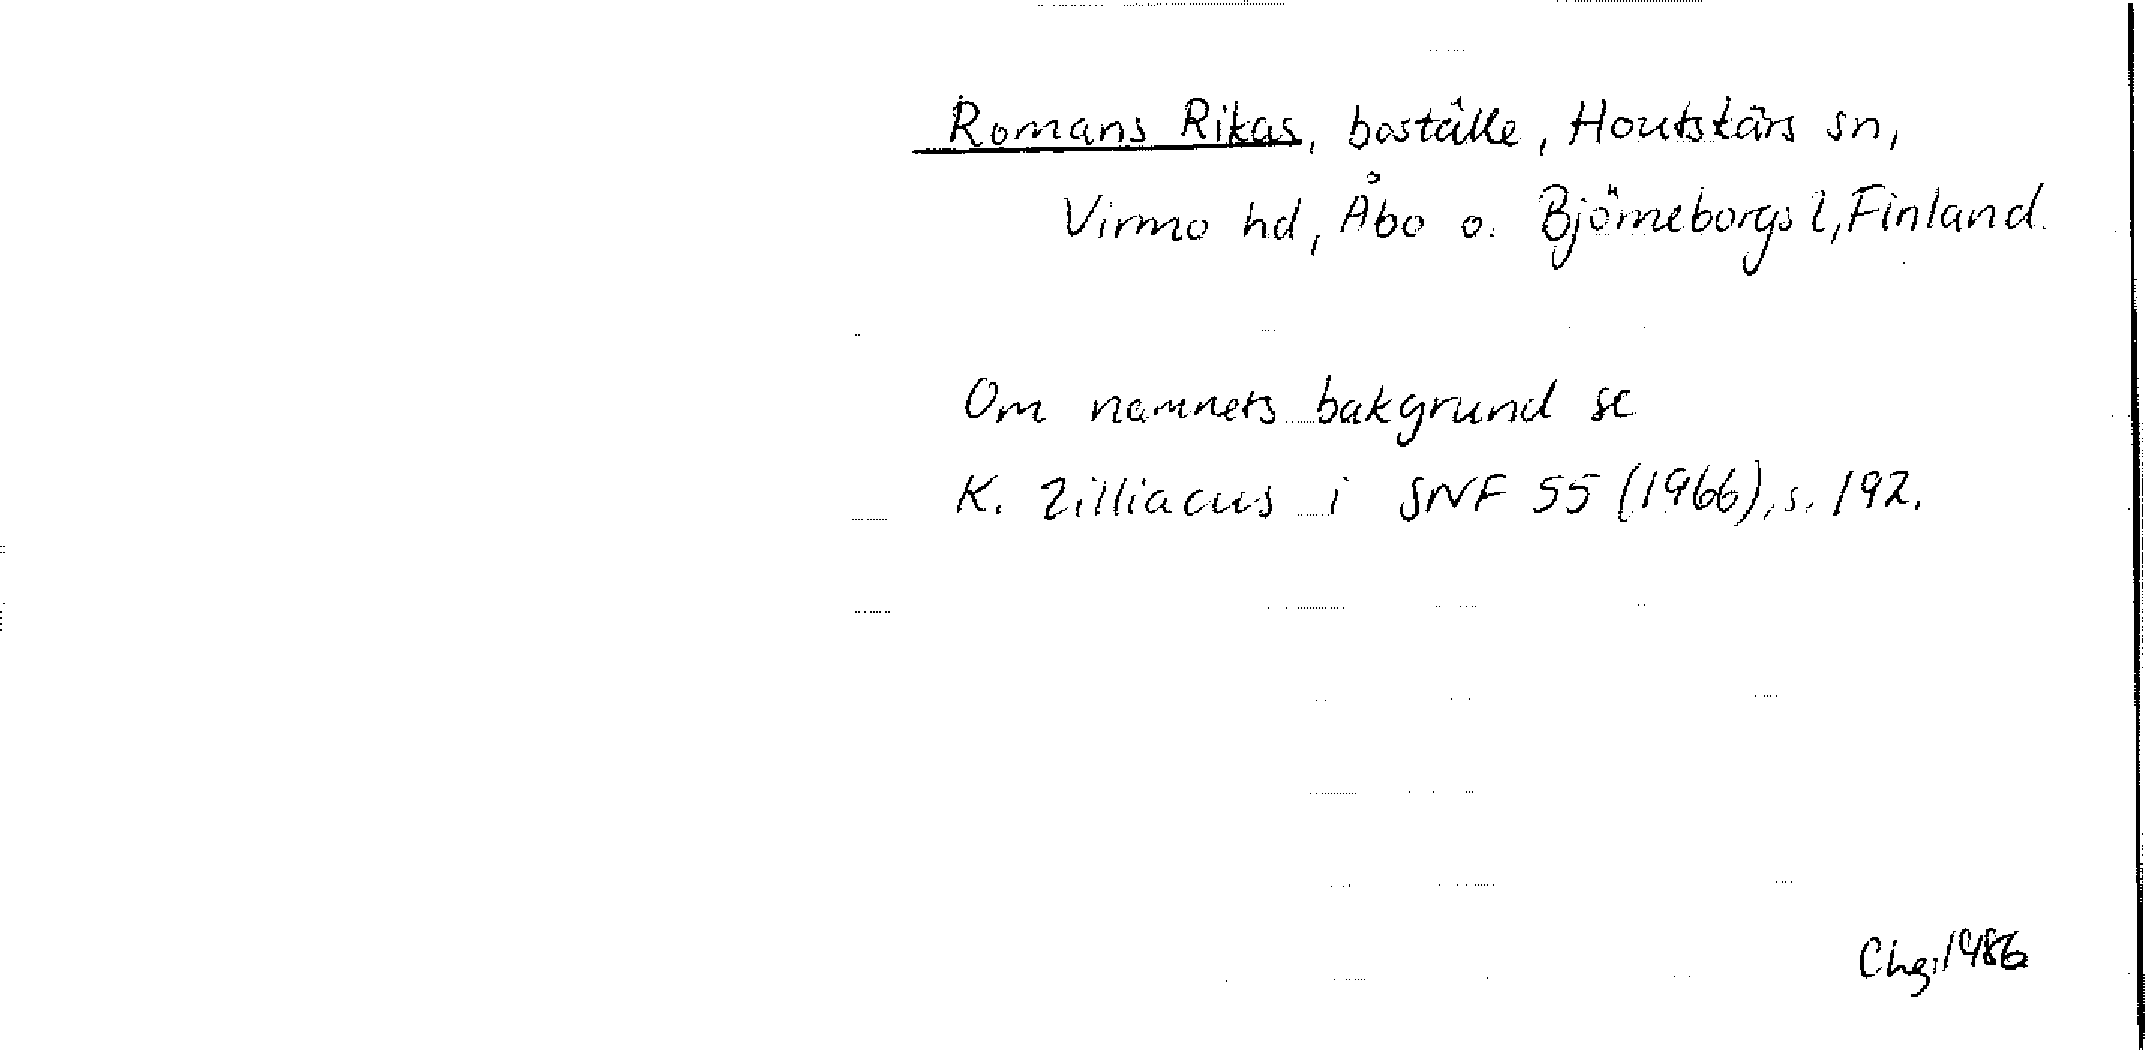 Romans Rikas, boställe, Houtskärs sn,
Virmo hd, Åbo o. Björneborgs l, Finland.
Om namnets bakgrund se
K. Zilliacus i SNF 55 (1966), s. 192.
Chg, 1986